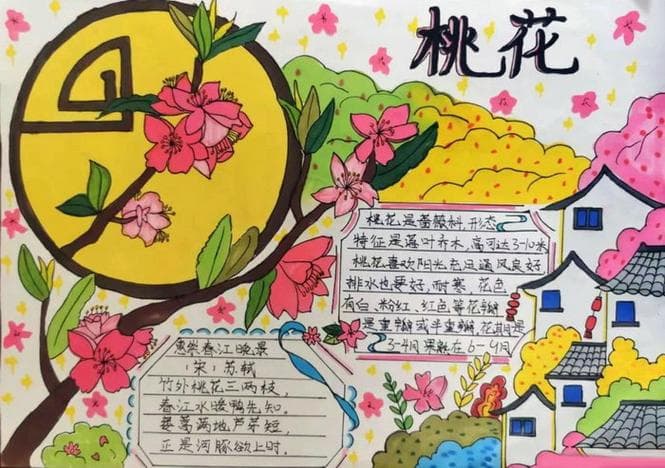 桃花
桃花是蔷薇科,形态
特征是落叶乔木,高可达3-10米
桃花喜欢阳光充足通风良好,
排水也要好,耐寒,花色
有白、粉红、红色等花瓣
是重瓣或半重瓣,花期是
3-4月果熟在6-9月
惠崇春江晚景
(宋)苏轼
竹外桃花三两枝,
春江水暖鸭先知。
蒌蒿满地芦芽短,
正是河豚欲上时。